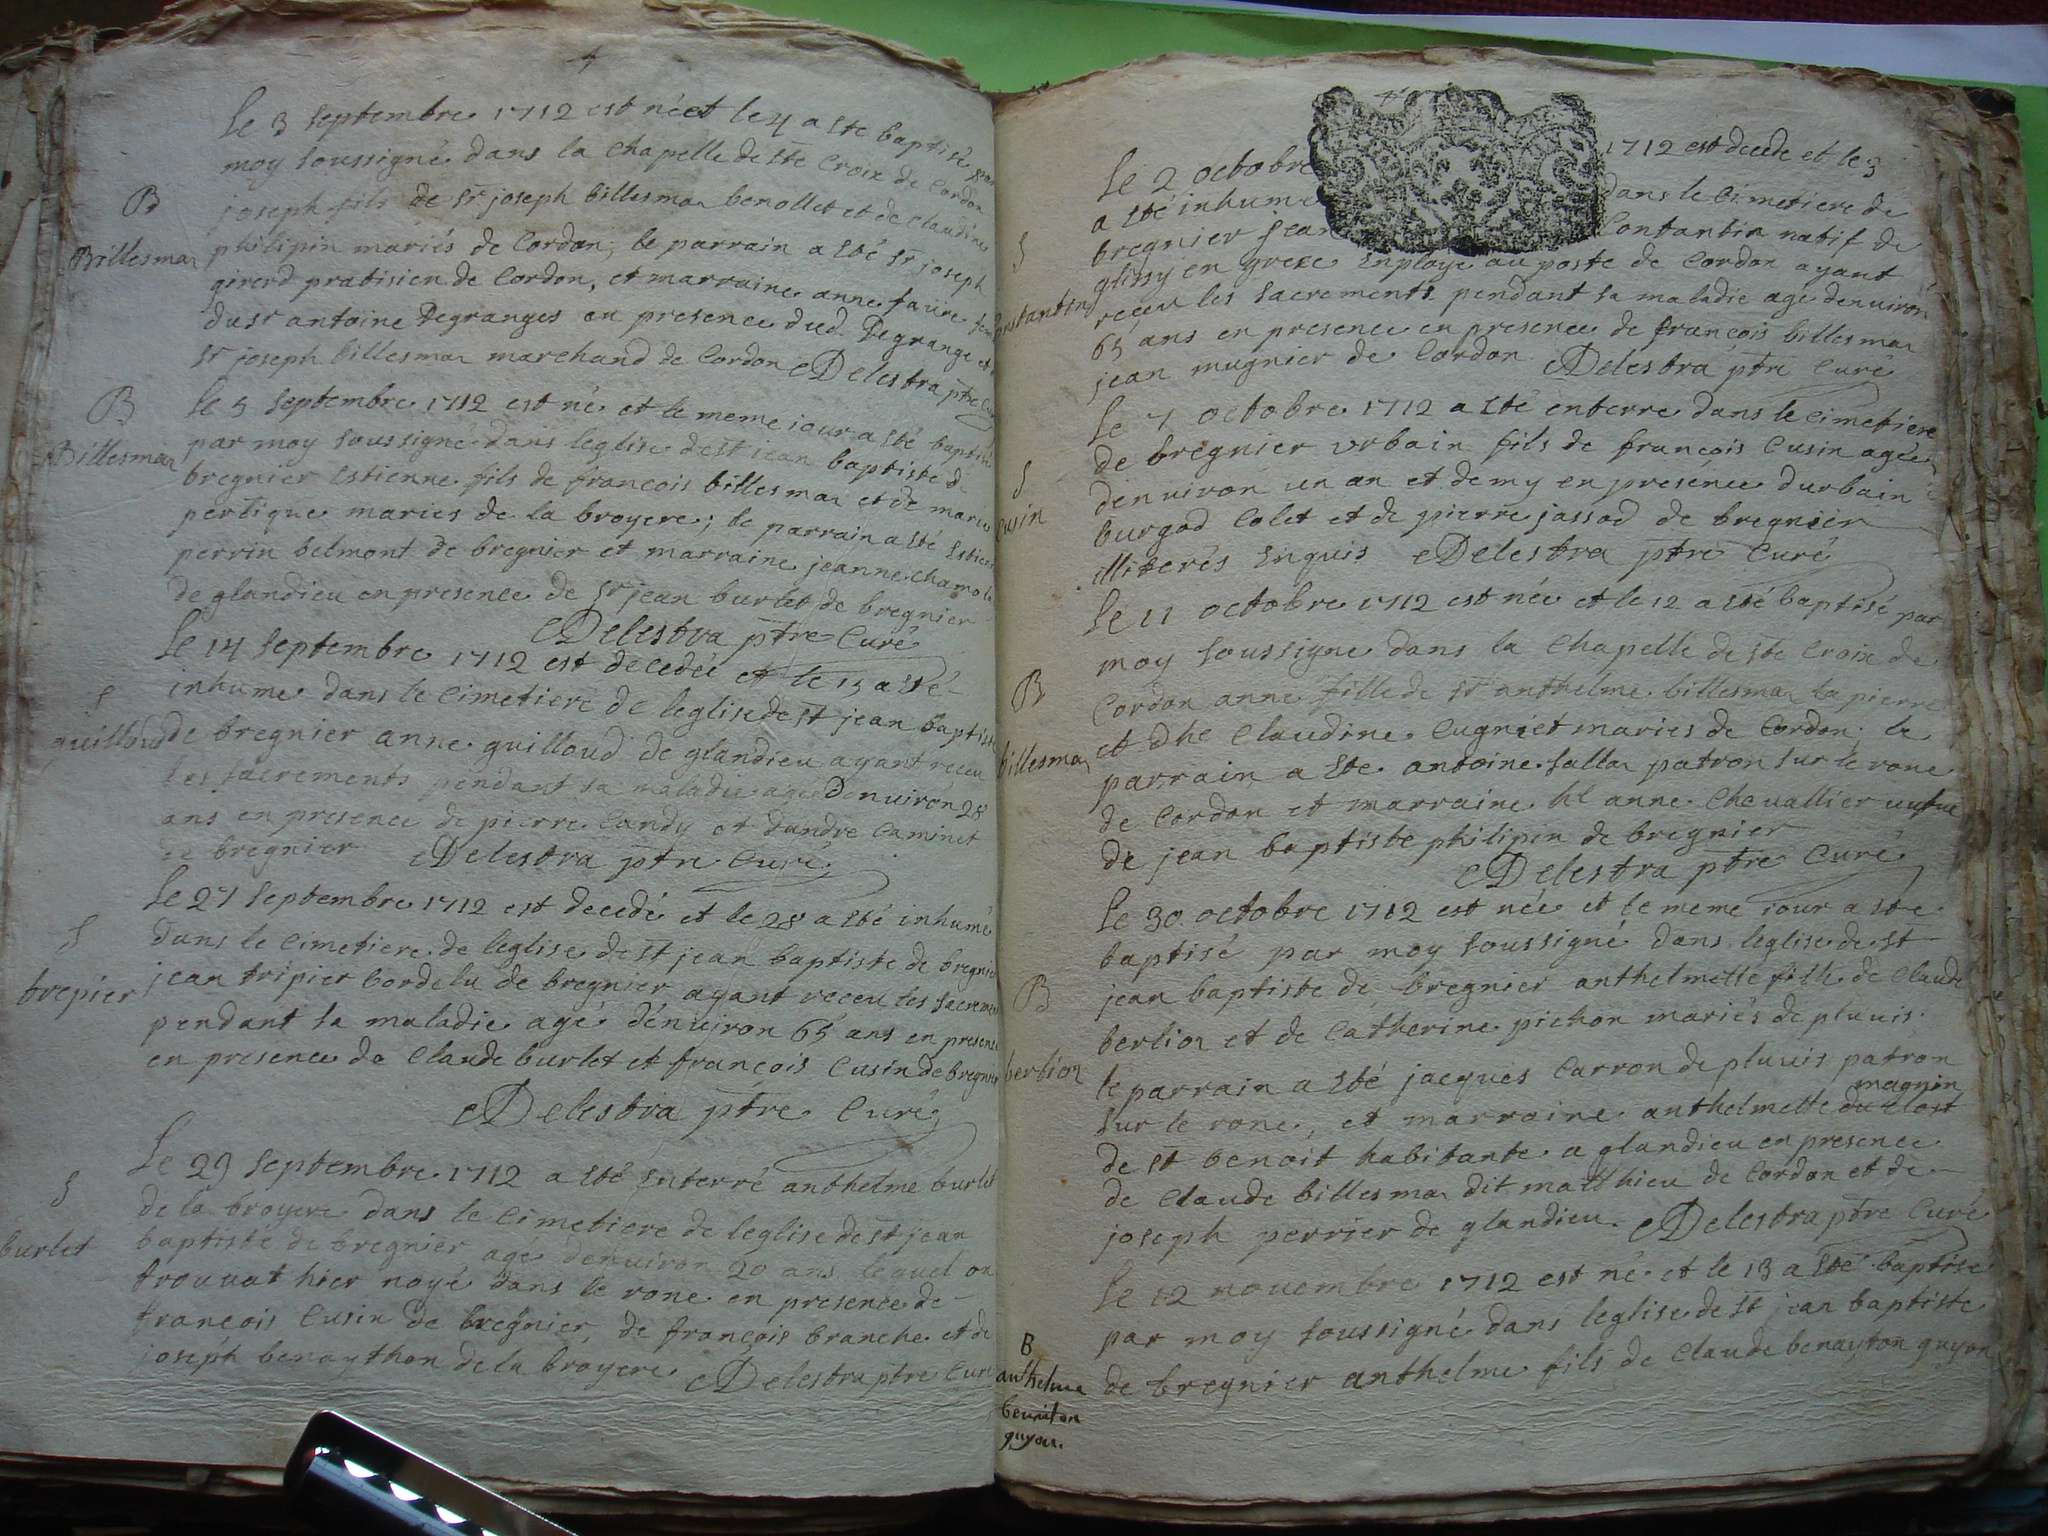 4
Le 3 septembre 1712 est né et le 4 a sté baptisé par
moy soussigné dans la chapelle de ste Croix de Cordon
joseph fils de sr joseph billesmaz benollet et de claudine
B
Billesmaz
philipin mariés de Cordon; le parrain a sté sr joseph
girerd pratisien de Cordon, et marraine anne favre
du sr antoine Degranges en presence dud. Degrange et
sr joseph billesmaz marchand de Cordon Delestra ptre Curé
B
Billesmaz
Le 5 septembre 1712 est né et le meme iour a sté baptisé
par moy soussigné dans leglise de st jean baptiste de
bregnier estienne fils de francois billesmaz et de marie
pertique mariés de la broyere; le parrain a sté
perrin belmont de bregnier et marraine jeanne
de glandieu en presence de sr jean burlet de bregnier
Delestra ptre Curé
Le 14 septembre 1712 est decedée et le 15 a sté
S
guilloud
inhume dans le cimetiere de leglise de st jean baptiste
de bregnier anne guilloud de glandieu ayant receu
les sacrements pendant sa maladie agée denuiron 28
ans en presence de pierre Candy et dandre Caminet
de bregnier Delestra ptre Curé
Le 27 septembre 1712 est decedé et le 28 a sté inhumé
S
trepier
dans le cimetiere de leglise de st jean baptiste de bregnier
jean tripier bordelu de bregnier ayant receu les sacremen
pendant sa maladie agé dénuiron 65 ans en presence
en presence de Claude burlet et françois Cusin de bregnier
Delestra ptre Curé
Le 29 septembre 1712 a sté enterré anthelme burlet
S
burlet
de la broyere dans le cimetiere de leglise de st jean
baptiste de bregnier agé denuiron 20 ans lequel on
trouvat hier noyé dans le rone en presence de
françois Cusin de bregnier, de françois branche et de
joseph benaython de la broyere Delestra ptre Curé
4e
Le 2 octobre 1712 est decede et le 3
a sté inhumé dans le cimetiere de
S
Constantin
bregnier jean Contantin natif de
en grece employe au poste de Cordon ayant
receu les sacrements pendant sa maladie agé denuiron
65 ans en presence en presence de françois billesmaz
jean mugnier de Cordon Delestra ptre Curé
Le 7 octobre 1712 a sté enterre dans le cimetiere
S
cusin
de bregnier vrbain fils de françois Cusin agée
dénuiron un an et demy en presence durbain
burgod Colet et de pierre jassod de bregnier
illiterés enquis Delestra ptre Curé
Le 11 octobre 1712 est née et le 12 a sté baptisé par
moy soussigne dans la Chapelle de ste Croix de
B
billesmaz
Cordon anne fille de sr anthelme billesmaz la pierre
et dhe Claudine Cugniet maries de Cordon; le
parrain a sté antoine sallaz patron sur le rone
de Cordon et marraine hc anne Chevallier veufue
de jean baptiste philipin de bregnier
Delestra ptre Curé
Le 30 octobre 1712 est née et le meme iour a ste
baptisé par moy soussigné dans leglise de st
B
berlioz
jean baptiste de bregnier anthelmette fille de Claude
berlioz et de Catherine pichon mariés de pluuis.
le parrain a sté jacques Carron de pluuis patron
sur le rone, et marraine anthelmette du clost magnin
de st benoit habitante a glandieu en presence
de Claude billesmaz dit matthieu de Cordon et de
joseph perrier de glandieu. Delestra ptre Curé
Le 12 nouembre 1712 est né et le 13 a sté baptisé
B
anthelme
benaiton
guyon.
par moy soussigné dans leglise de st jean baptiste
de bregnier anthelme fils de Claude benayton guyon